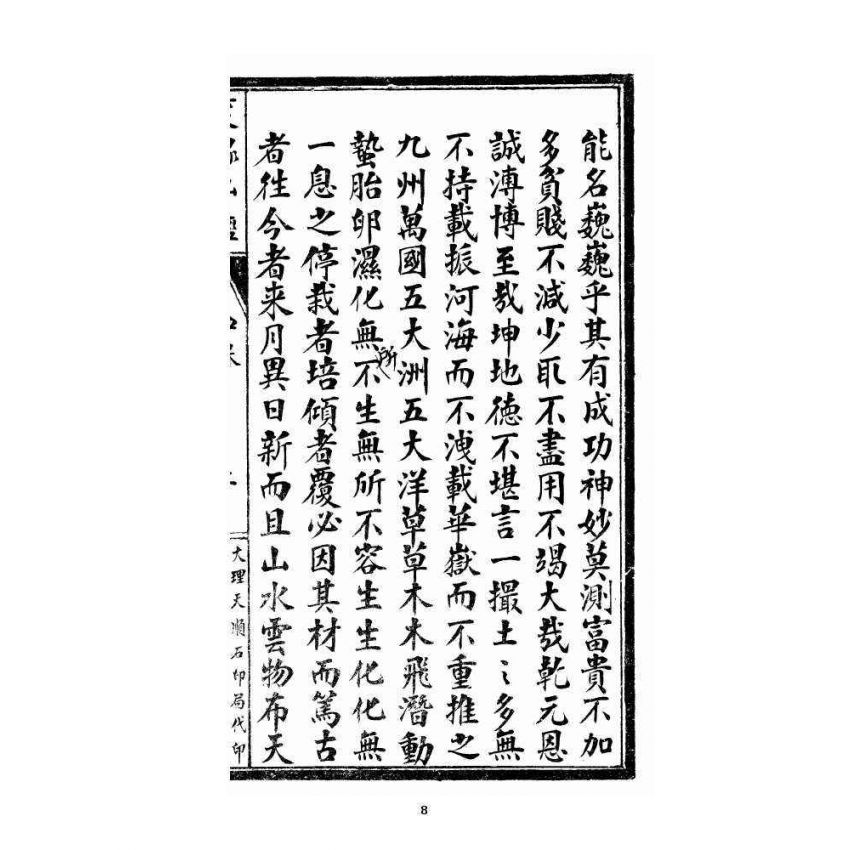 能名巍巍乎其有成功神妙莫測富貴不加
多貧賤不減少取不盡用不竭大哉乾元恩
誠溥博至哉坤地德不堪言一撮土〻多無
不持載振河海而不洩載華嶽而不重推之
九州萬國五大洲五大洋草草木木飛潛動
蟄胎卵濕化無所不生無所不容生生化化無
一息之停栽者培傾者覆必因其材而篤古
者往今者来月異日新而且山水雲物布天
大理天順石印局代印
8